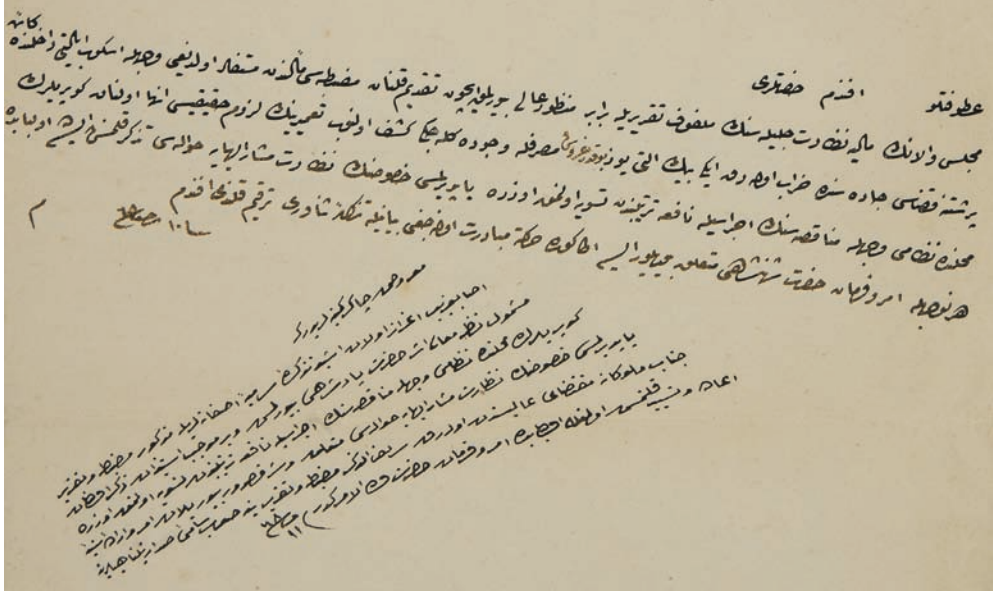 عطوفتلو افندم حضرتلری
مجلس والانك ماليه نظارت جليله سنك ملفوف تقريريله برابر منظور عالی بیورلمق ایچون تقدیم قلنان مضبطه سی مآلندن مستفاد اولدیغی وجهله اسکوب ایالتی داخلنده کائن
پرشتنه قضاسی جاده سنده خراب اوله رق ایکی بیك التی یوز غروش مصرفله وجوده کله جکی کشف اولنوب تعمیرینك لزوم حقیقیسی انها اولنان کوپریلرك
محلنده نظامی وجهله مناقصه سنك اجراسیله نافعه ترتیبندن تسویه اولنمق اوزره یاپدیرلمسی خصوصنك نظارت مشارالیهایه حواله سی تذکر قلنمش ایسه ده اولبابده
هر نوجهله امر و فرمان حضرت شهنشاهی متعلق بیوریلور ایسه اکا کوره حرکته مبادرت اولنه جغی بیانیله تذکره ثناوری ترقیم قلندی افندم
م
معروض چاکر کمینه لریدر که
اصابعزیب اعزاز اولان اشبو تذکره سامیه اصفانه لریله مذکور مضبطه و تقریر
مشمول نظر معالی اثر حضرت پادشاهی بیورلمش و بر موجب استیذان ذکر اولنان
کوپریلرك محلنده نظامی وجهله مناقصه سنك اجراسیله نافعه ترتیبندن تسویه اولنمق اوزره
یاپدیرلمسی خصوصنك نظارت مشارالیهایه حواله سی متعلق و شرفصدور بیوریلان امر و اراده سنیه
جناب ملوکانه مقتضای عالیسندن اوله رق سالف الذکر مضبطه و تقریر ینه صوب سامی صدارتپناهیلرینه
اعاده و تسییر قلنمش اولمغله اولبابده امر و فرمان حضرت ولی الامرکدر